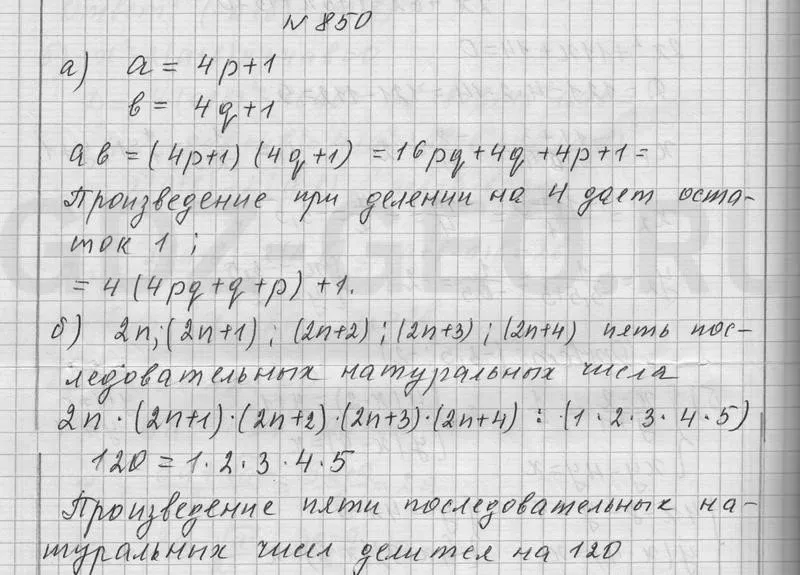 № 850
а) a = 4p+1
b = 4q+1
ab = (4p+1) (4q+1) = 16pq+4q+4p+1=
Произведение при делении на 4 дает оста-
ток 1 ;
= 4 (4pq+q+p) +1.
б) 2n; (2n+1) ; (2n+2) ; (2n+3) ; (2n+4) пять пос-
ледовательных натуральных числа
2n · (2n+1) · (2n+2) · (2n+3) · (2n+4) : (1 · 2 · 3 · 4 · 5)
120 = 1 · 2 · 3 · 4 · 5
Произведение пяти последовательных на-
туральных чисел делится на 120